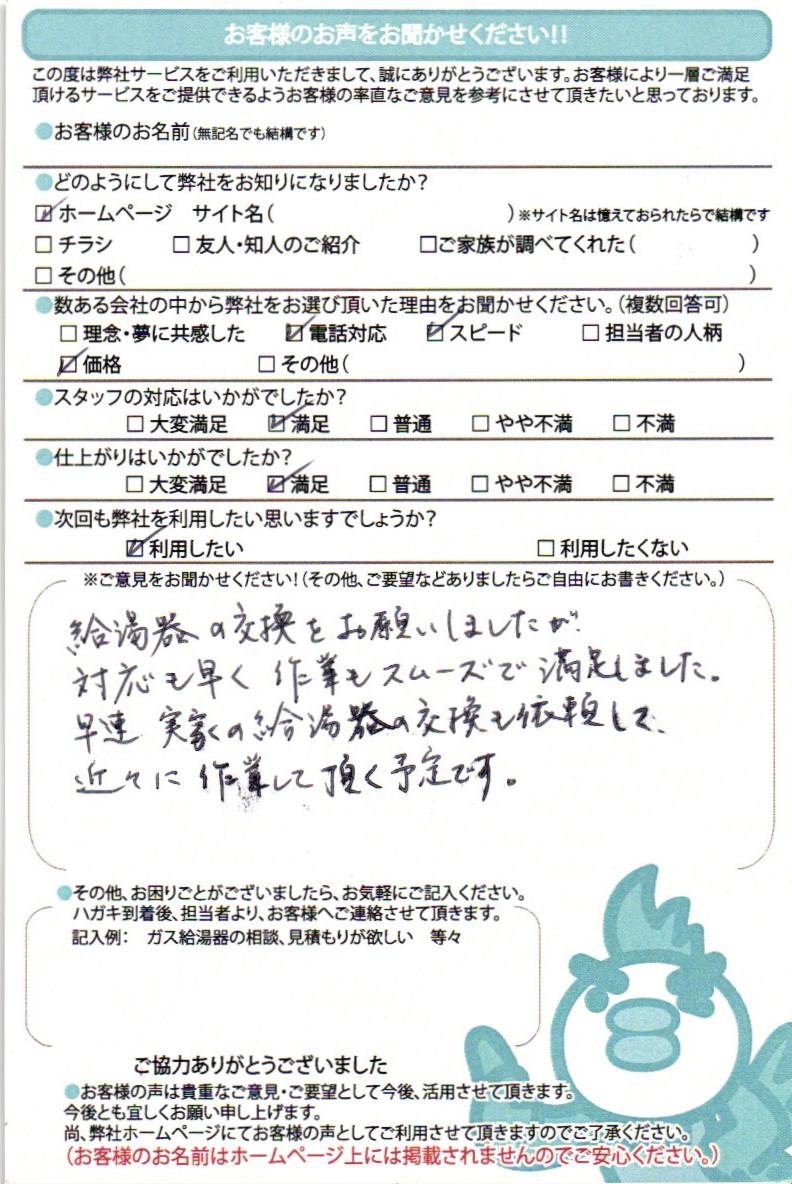 お客様のお声をお聞かせください!!
この度は弊社サービスをご利用いただきまして、誠にありがとうございます。お客様により一層ご満足
頂けるサービスをご提供できるようお客様の率直なご意見を参考にさせて頂きたいと思っております。
●お客様のお名前(無記名でも結構です)
●どのようにして弊社をお知りになりましたか?
☑ホームページ サイト名( )※サイト名は憶えておられたらで結構です
□チラシ □友人・知人のご紹介 □ご家族が調べてくれた( )
□その他( )
●数ある会社の中から弊社をお選び頂いた理由をお聞かせください。(複数回答可)
□理念・夢に共感した ☑電話対応 ☑スピード □担当者の人柄
☑価格 □その他( )
●スタッフの対応はいかがでしたか?
□大変満足 ☑満足 □普通 □やや不満 □不満
●仕上がりはいかがでしたか?
□大変満足 ☑満足 □普通 □やや不満 □不満
●次回も弊社を利用したい思いますでしょうか?
☑利用したい □利用したくない
※ご意見をお聞かせください!(その他、ご要望などありましたらご自由にお書きください。)
給湯器の交換をお願いしましたが、
対応も早く作業もスムーズで満足しました。
早速 実家の給湯器の交換も依頼して、
近々に作業して頂く予定です。
●その他、お困りごとがございましたら、お気軽にご記入ください。
ハガキ到着後、担当者より、お客様へご連絡させて頂きます。
記入例: ガス給湯器の相談、見積もりが欲しい 等々
ご協力ありがとうございました
●お客様の声は貴重なご意見・ご要望として今後、活用させて頂きます。
今後とも宜しくお願い申し上げます。
尚、弊社ホームページにてお客様の声としてご利用させて頂きますのでご了承ください。
(お客様のお名前はホームページ上には掲載されませんのでご安心ください。)